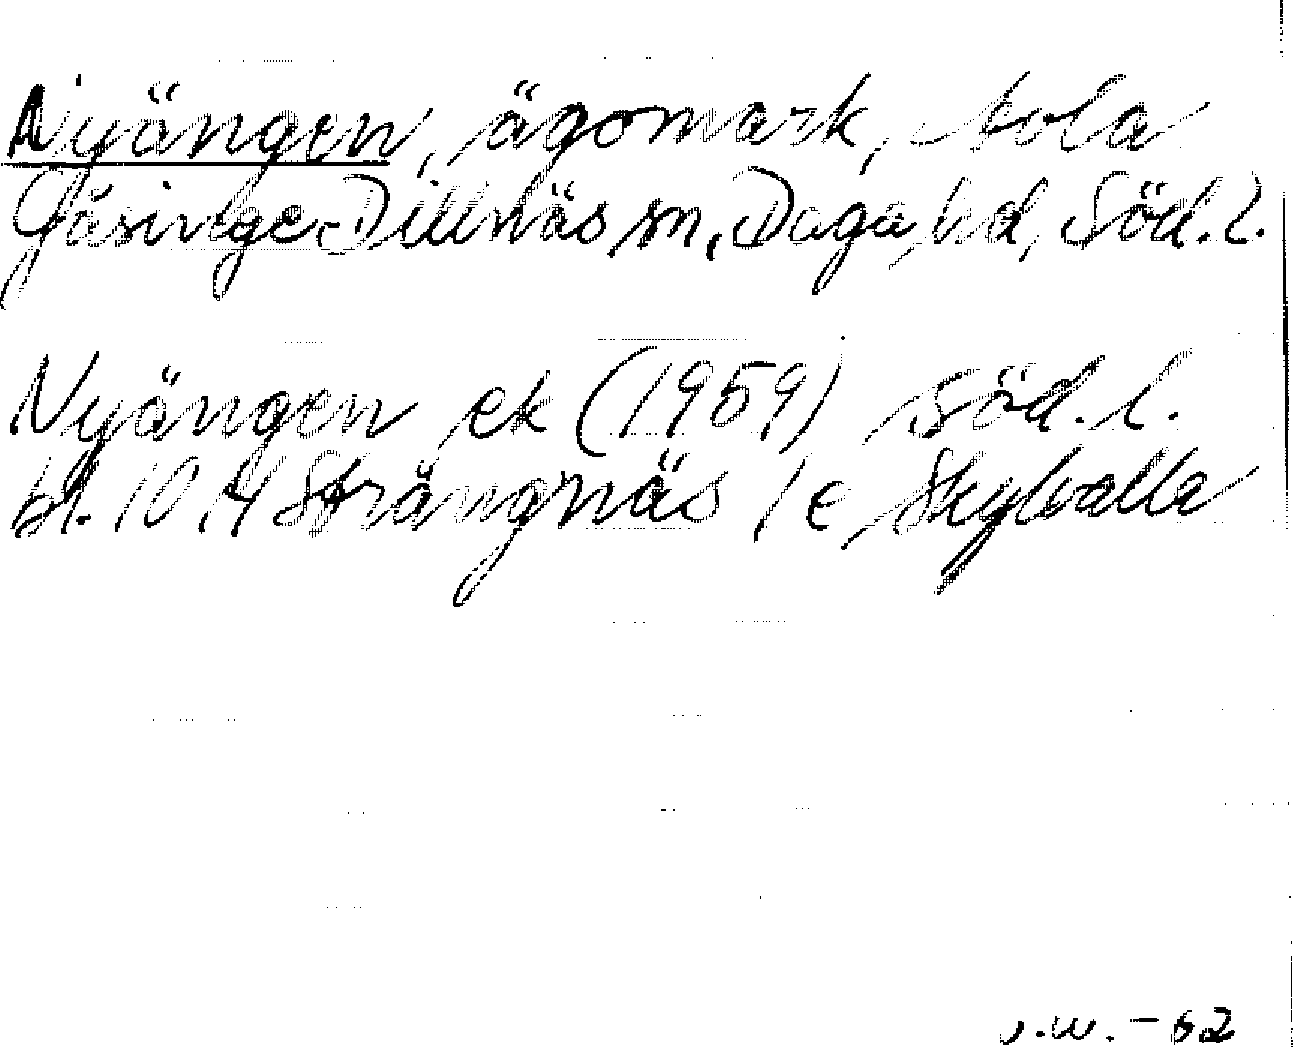 Nyängen, ägomark,
Gåsinge-Dillnäs sn, Daga hd, Söd. l.
Nyängen ek (1959) Söd. l.
bl. 10 H Strängnäs 1 e
J.W. - 62